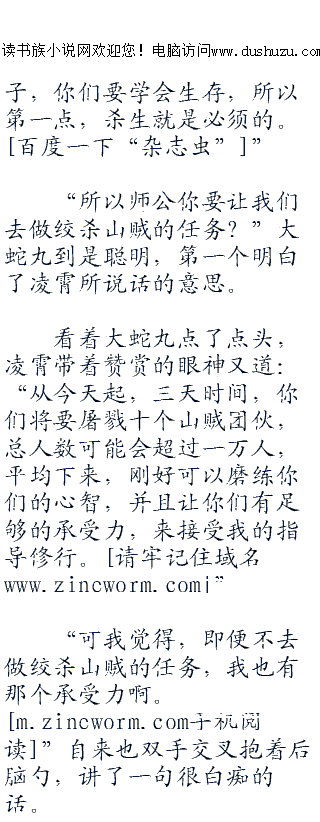 读书族小说网欢迎您！电脑访问www.dushuzu.com
子，你们要学会生存，所以
第一点，杀生就是必须的。
[百度一下“杂志虫”]”
“所以师公你要让我们
去做绞杀山贼的任务？”大
蛇丸到是聪明，第一个明白
了凌霄所说话的意思。
看着大蛇丸点了点头，
凌霄带着赞赏的眼神又道：
“从今天起，三天时间，你
们将要屠戮十个山贼团伙，
总人数可能会超过一万人，
平均下来，刚好可以磨练你
们的心智，并且让你们有足
够的承受力，来接受我的指
导修行。[请牢记住域名
www.zincworm.com]”
“可我觉得，即便不去
做绞杀山贼的任务，我也有
那个承受力啊。
[m.zincworm.com手机阅
读]”自来也双手交叉抱着后
脑勺，讲了一句很白痴的
话。